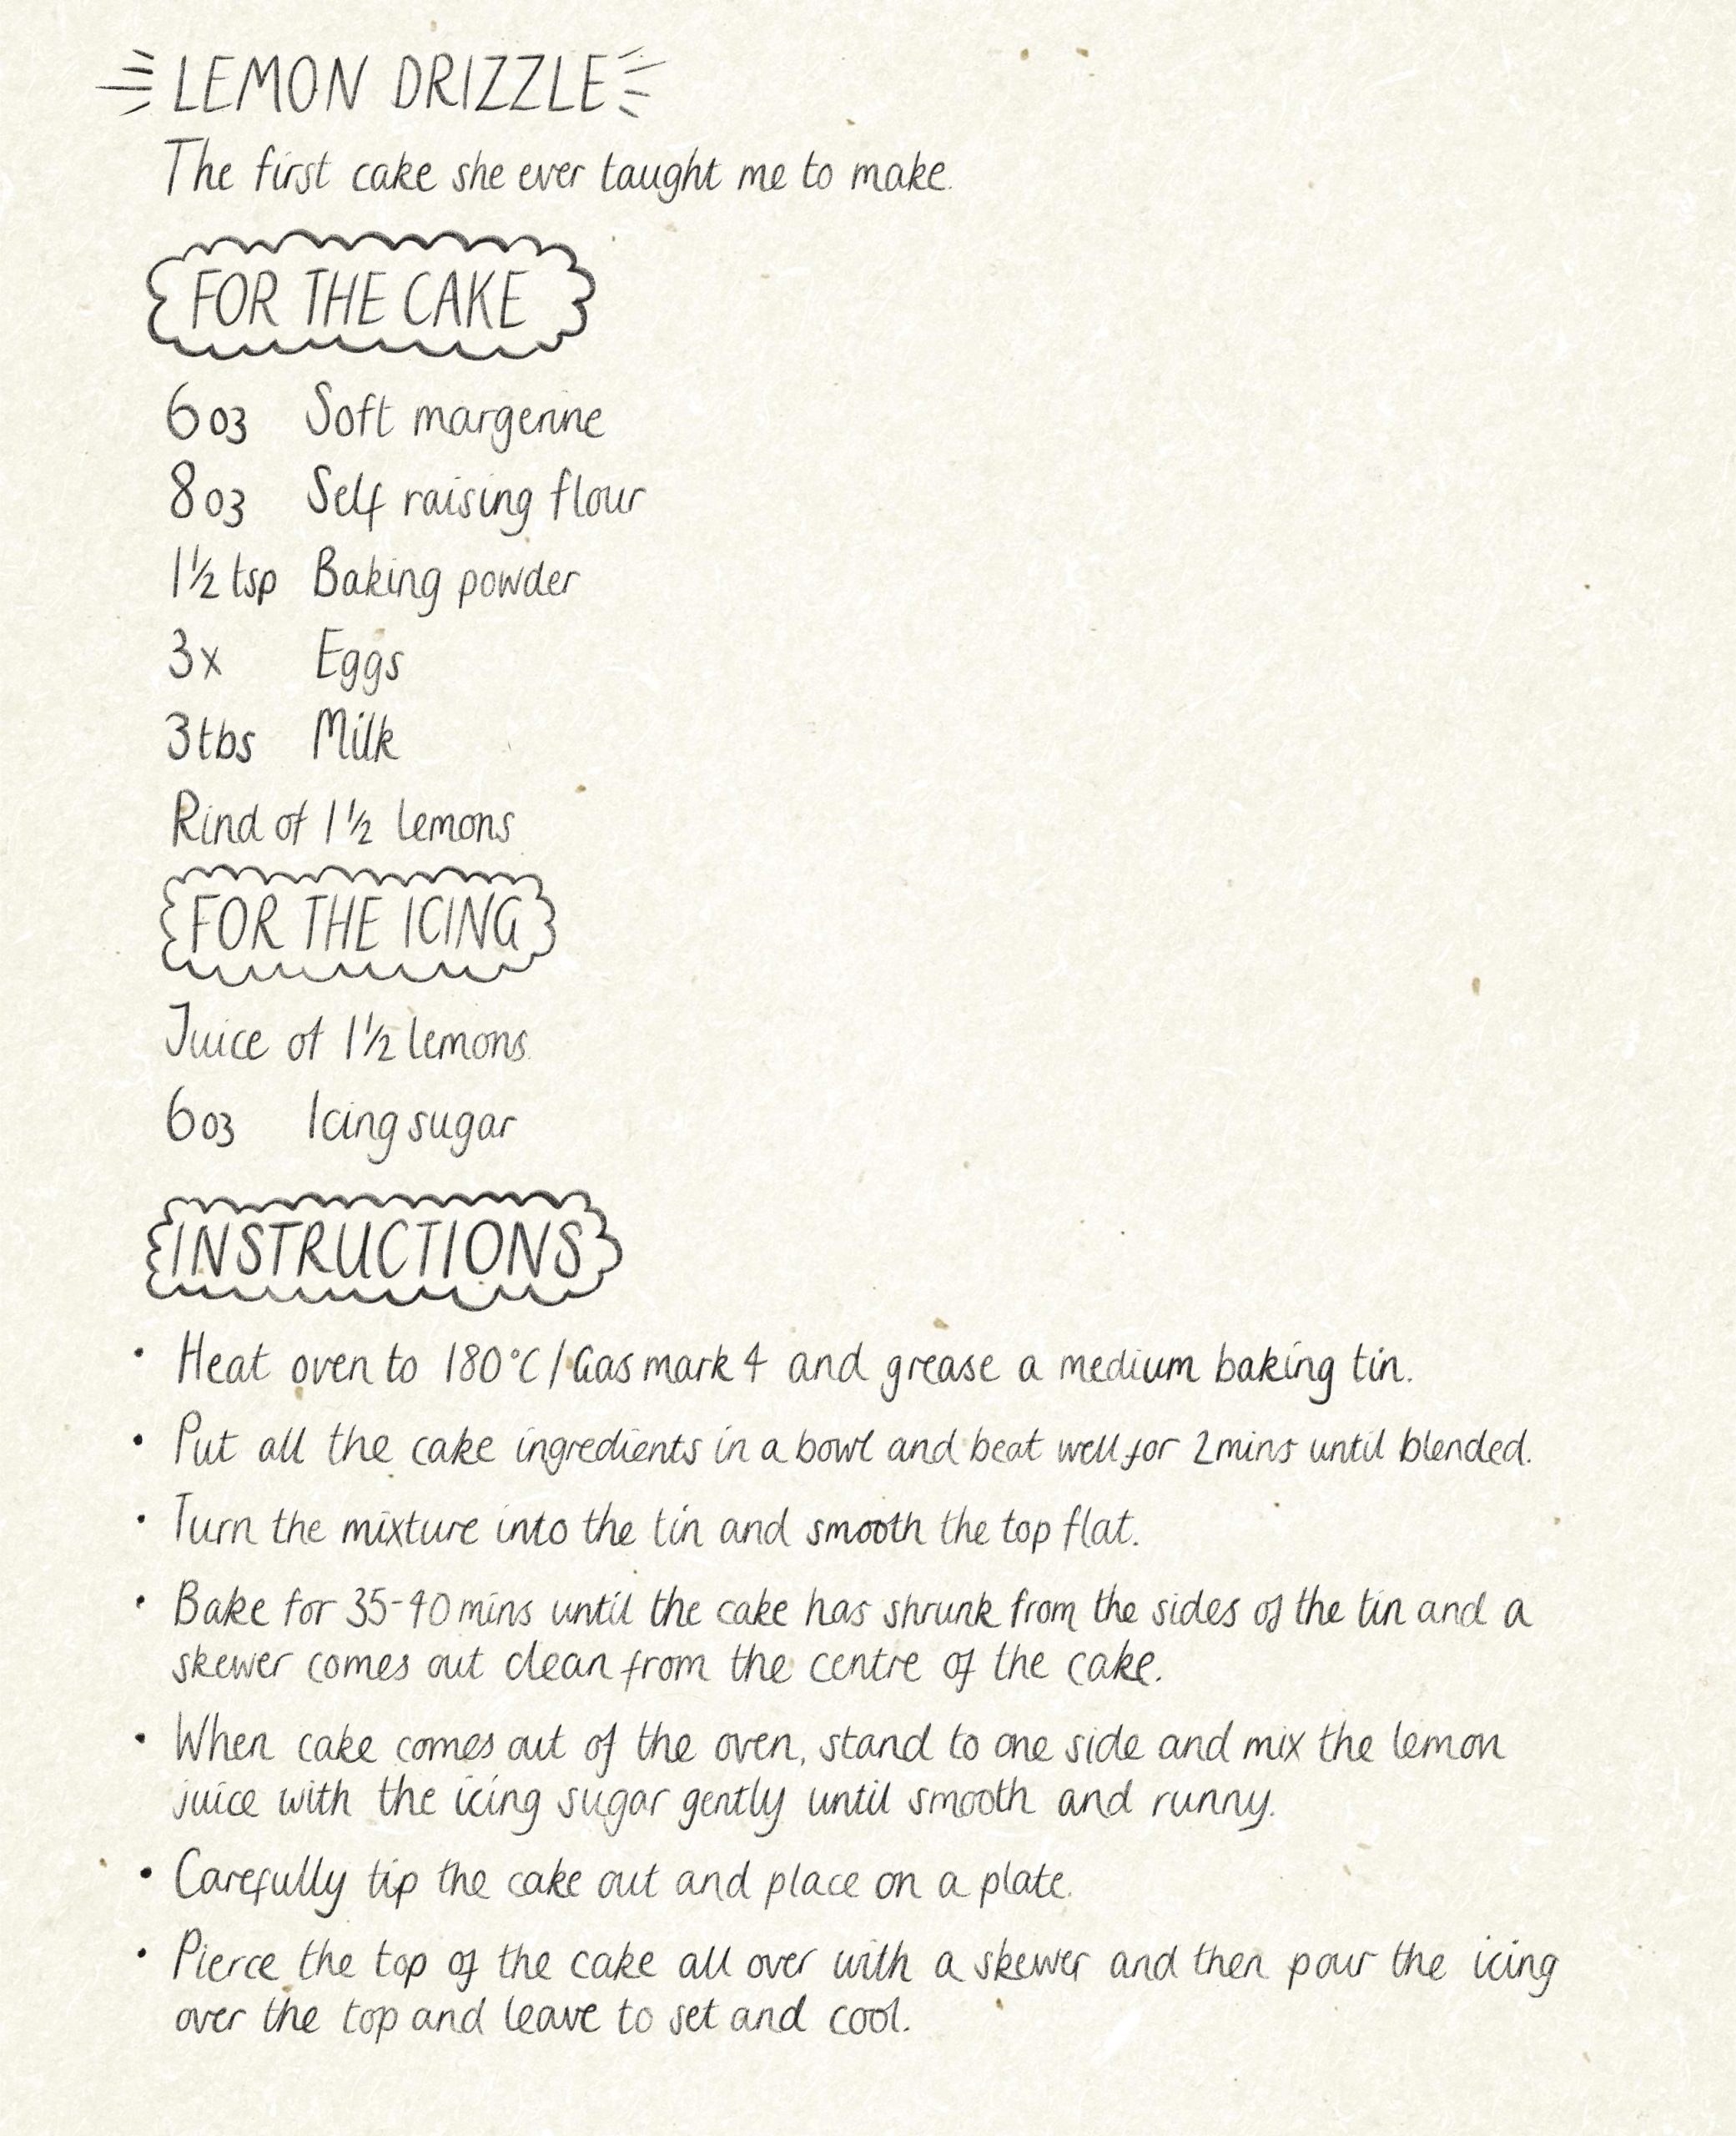 LEMON DRIZZLE
The first cake she ever taught me to make.
FOR THE CAKE
6oz Soft margerine
8oz Self raising flour
1½ tsp Baking powder
3x Eggs
3tbs Milk
Rind of 1½ lemons
FOR THE ICING
Juice of 1½ lemons.
6oz Icing sugar
INSTRUCTIONS
• Heat oven to 180°C/Gas mark 4 and grease a medium baking tin.
• Put all the cake ingredients in a bowl and beat well for 2mins until blended.
• Turn the mixture into the tin and smooth the top flat.
• Bake for 35-40mins until the cake has shrunk from the sides of the tin and a
skewer comes out clean from the centre of the cake.
• When cake comes out of the oven, stand to one side and mix the lemon
juice with the icing sugar gently until smooth and runny.
• Carefully tip the cake out and place on a plate.
• Pierce the top of the cake all over with a skewer and then pour the icing
over the top and leave to set and cool.